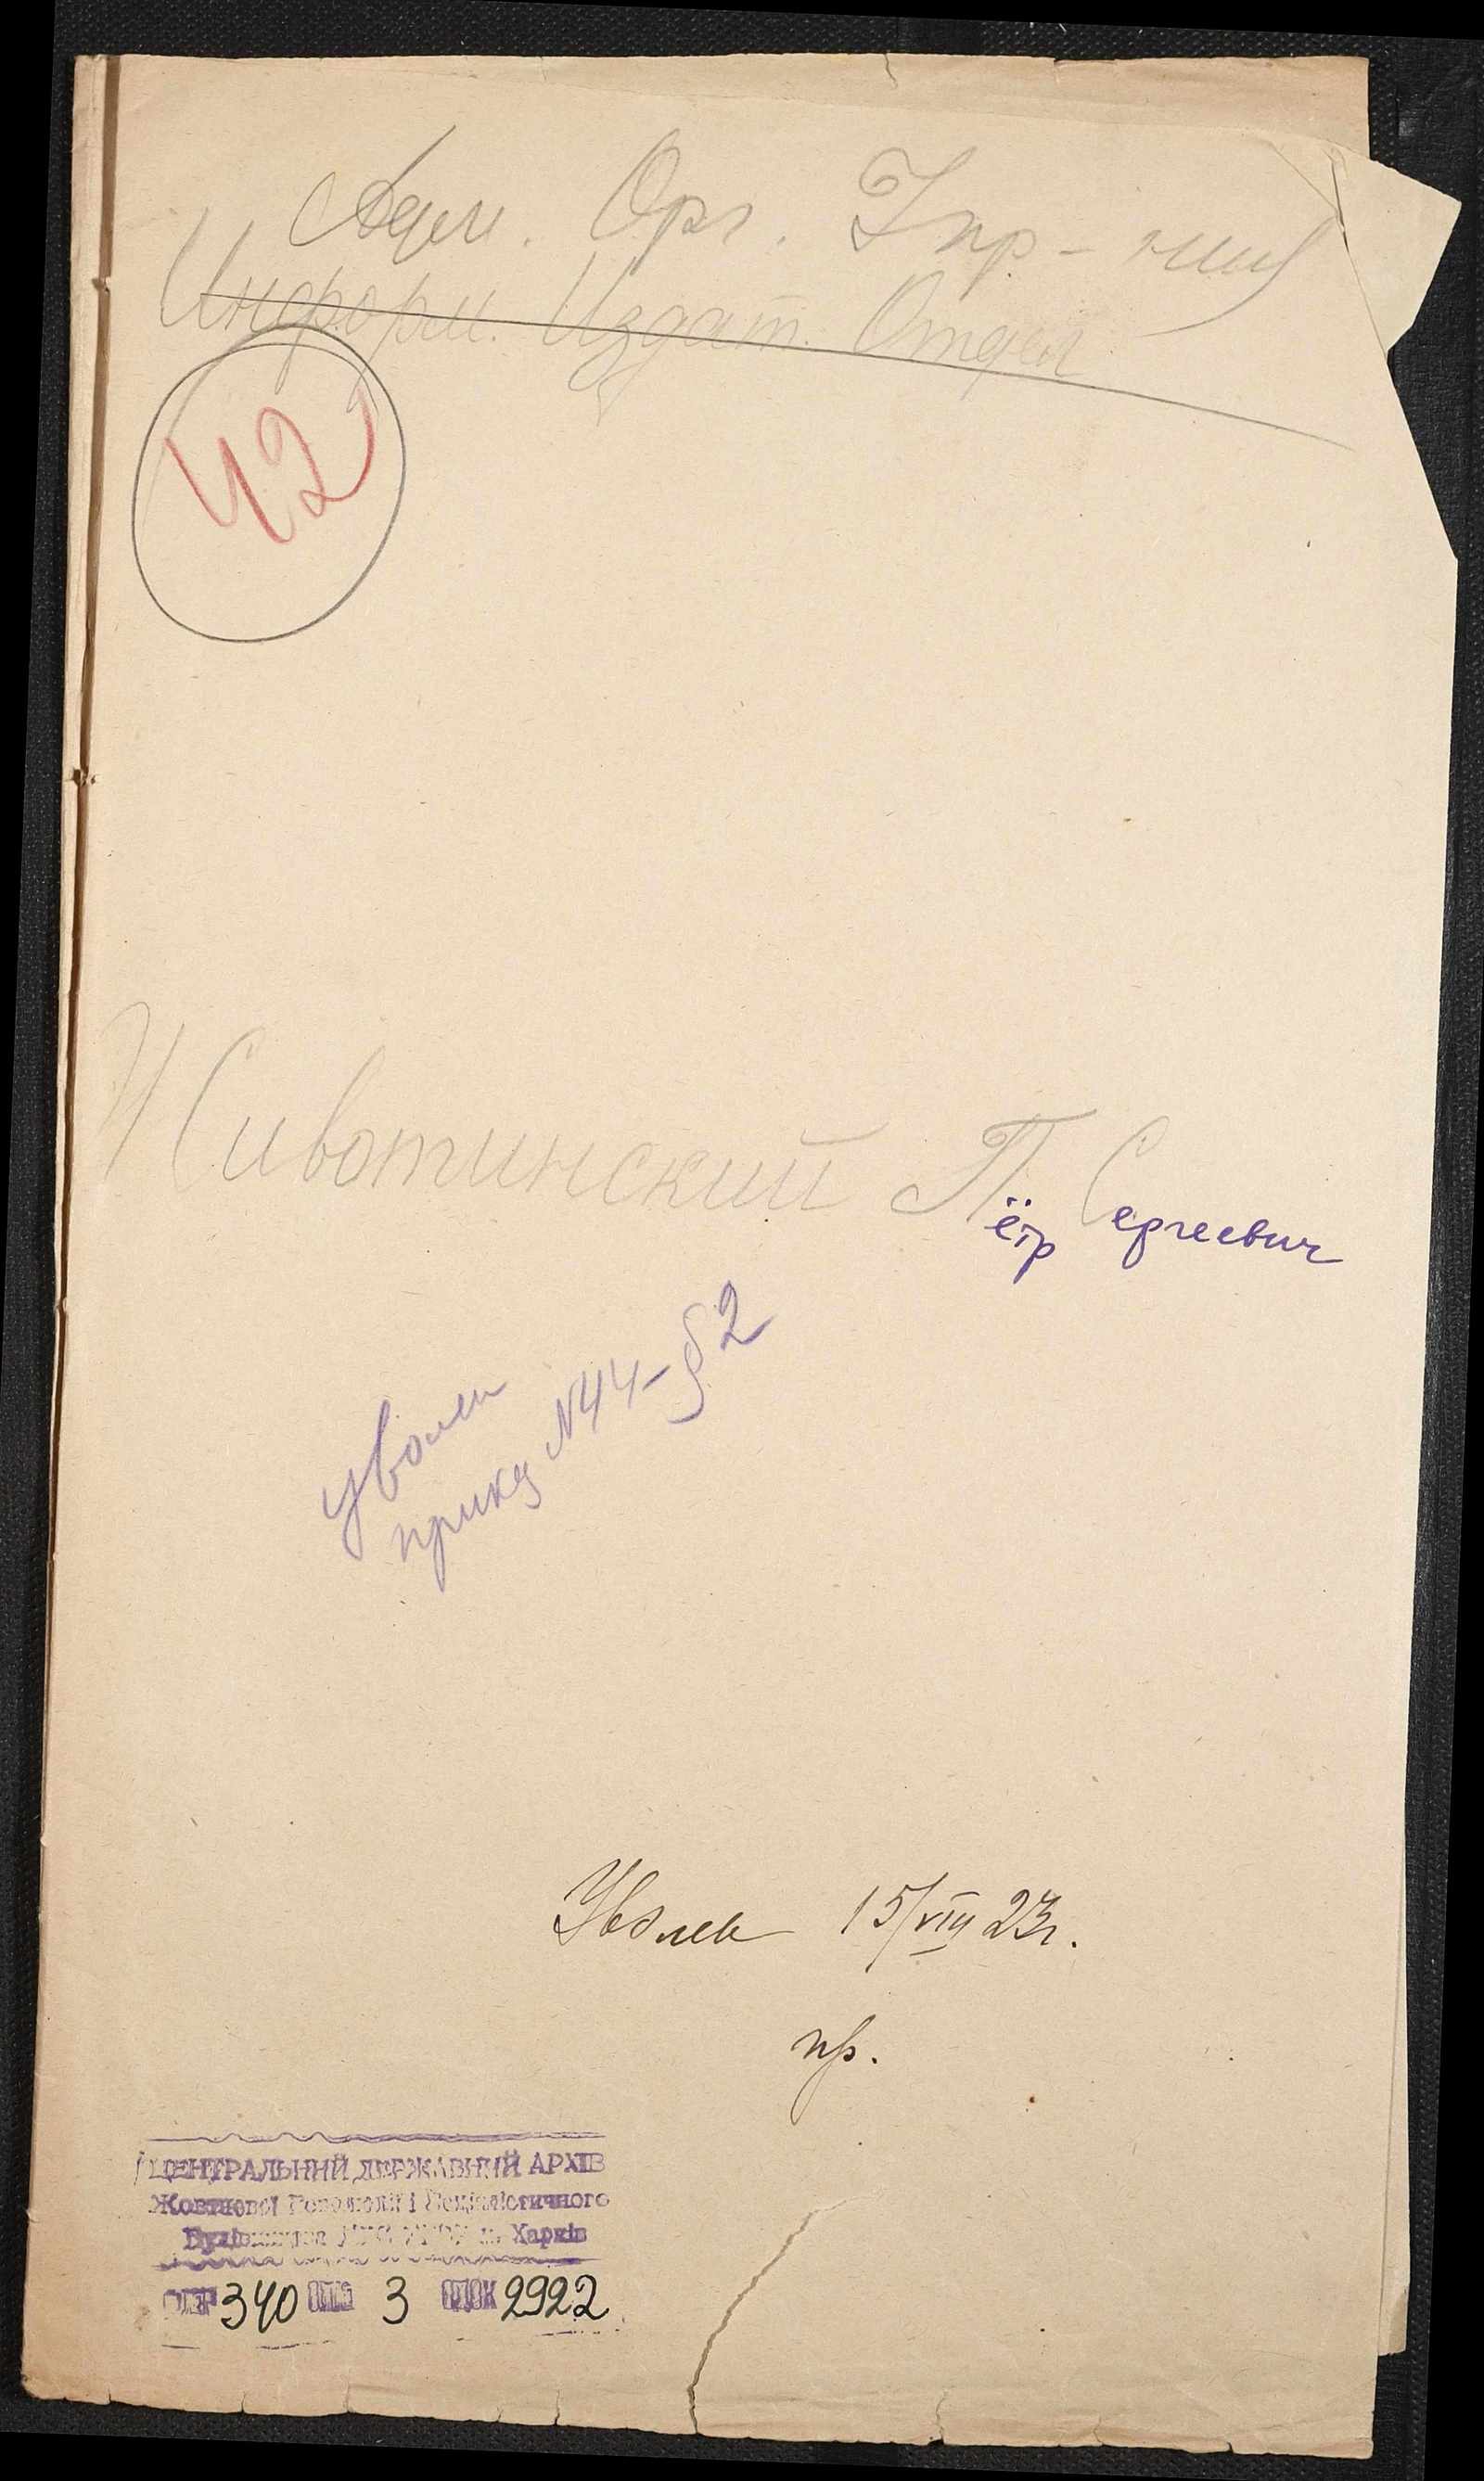 Адм. Орг. Упр-ния
Информ. Издат. Отдел
42
Животинский Пётр Сергеевич
уволен
приказ N44-§2
Уволен 15/VIII 23г.
пр.
ЦЕНТРАЛЬНИЙ ДЕРЖАВНИЙ АРХІВ
Жовтневої Революції і Соціалістичного
Будівництва УРСР м. Харків
ФОНД 340 ОПИС 3 ОД.ЗБ. 2922